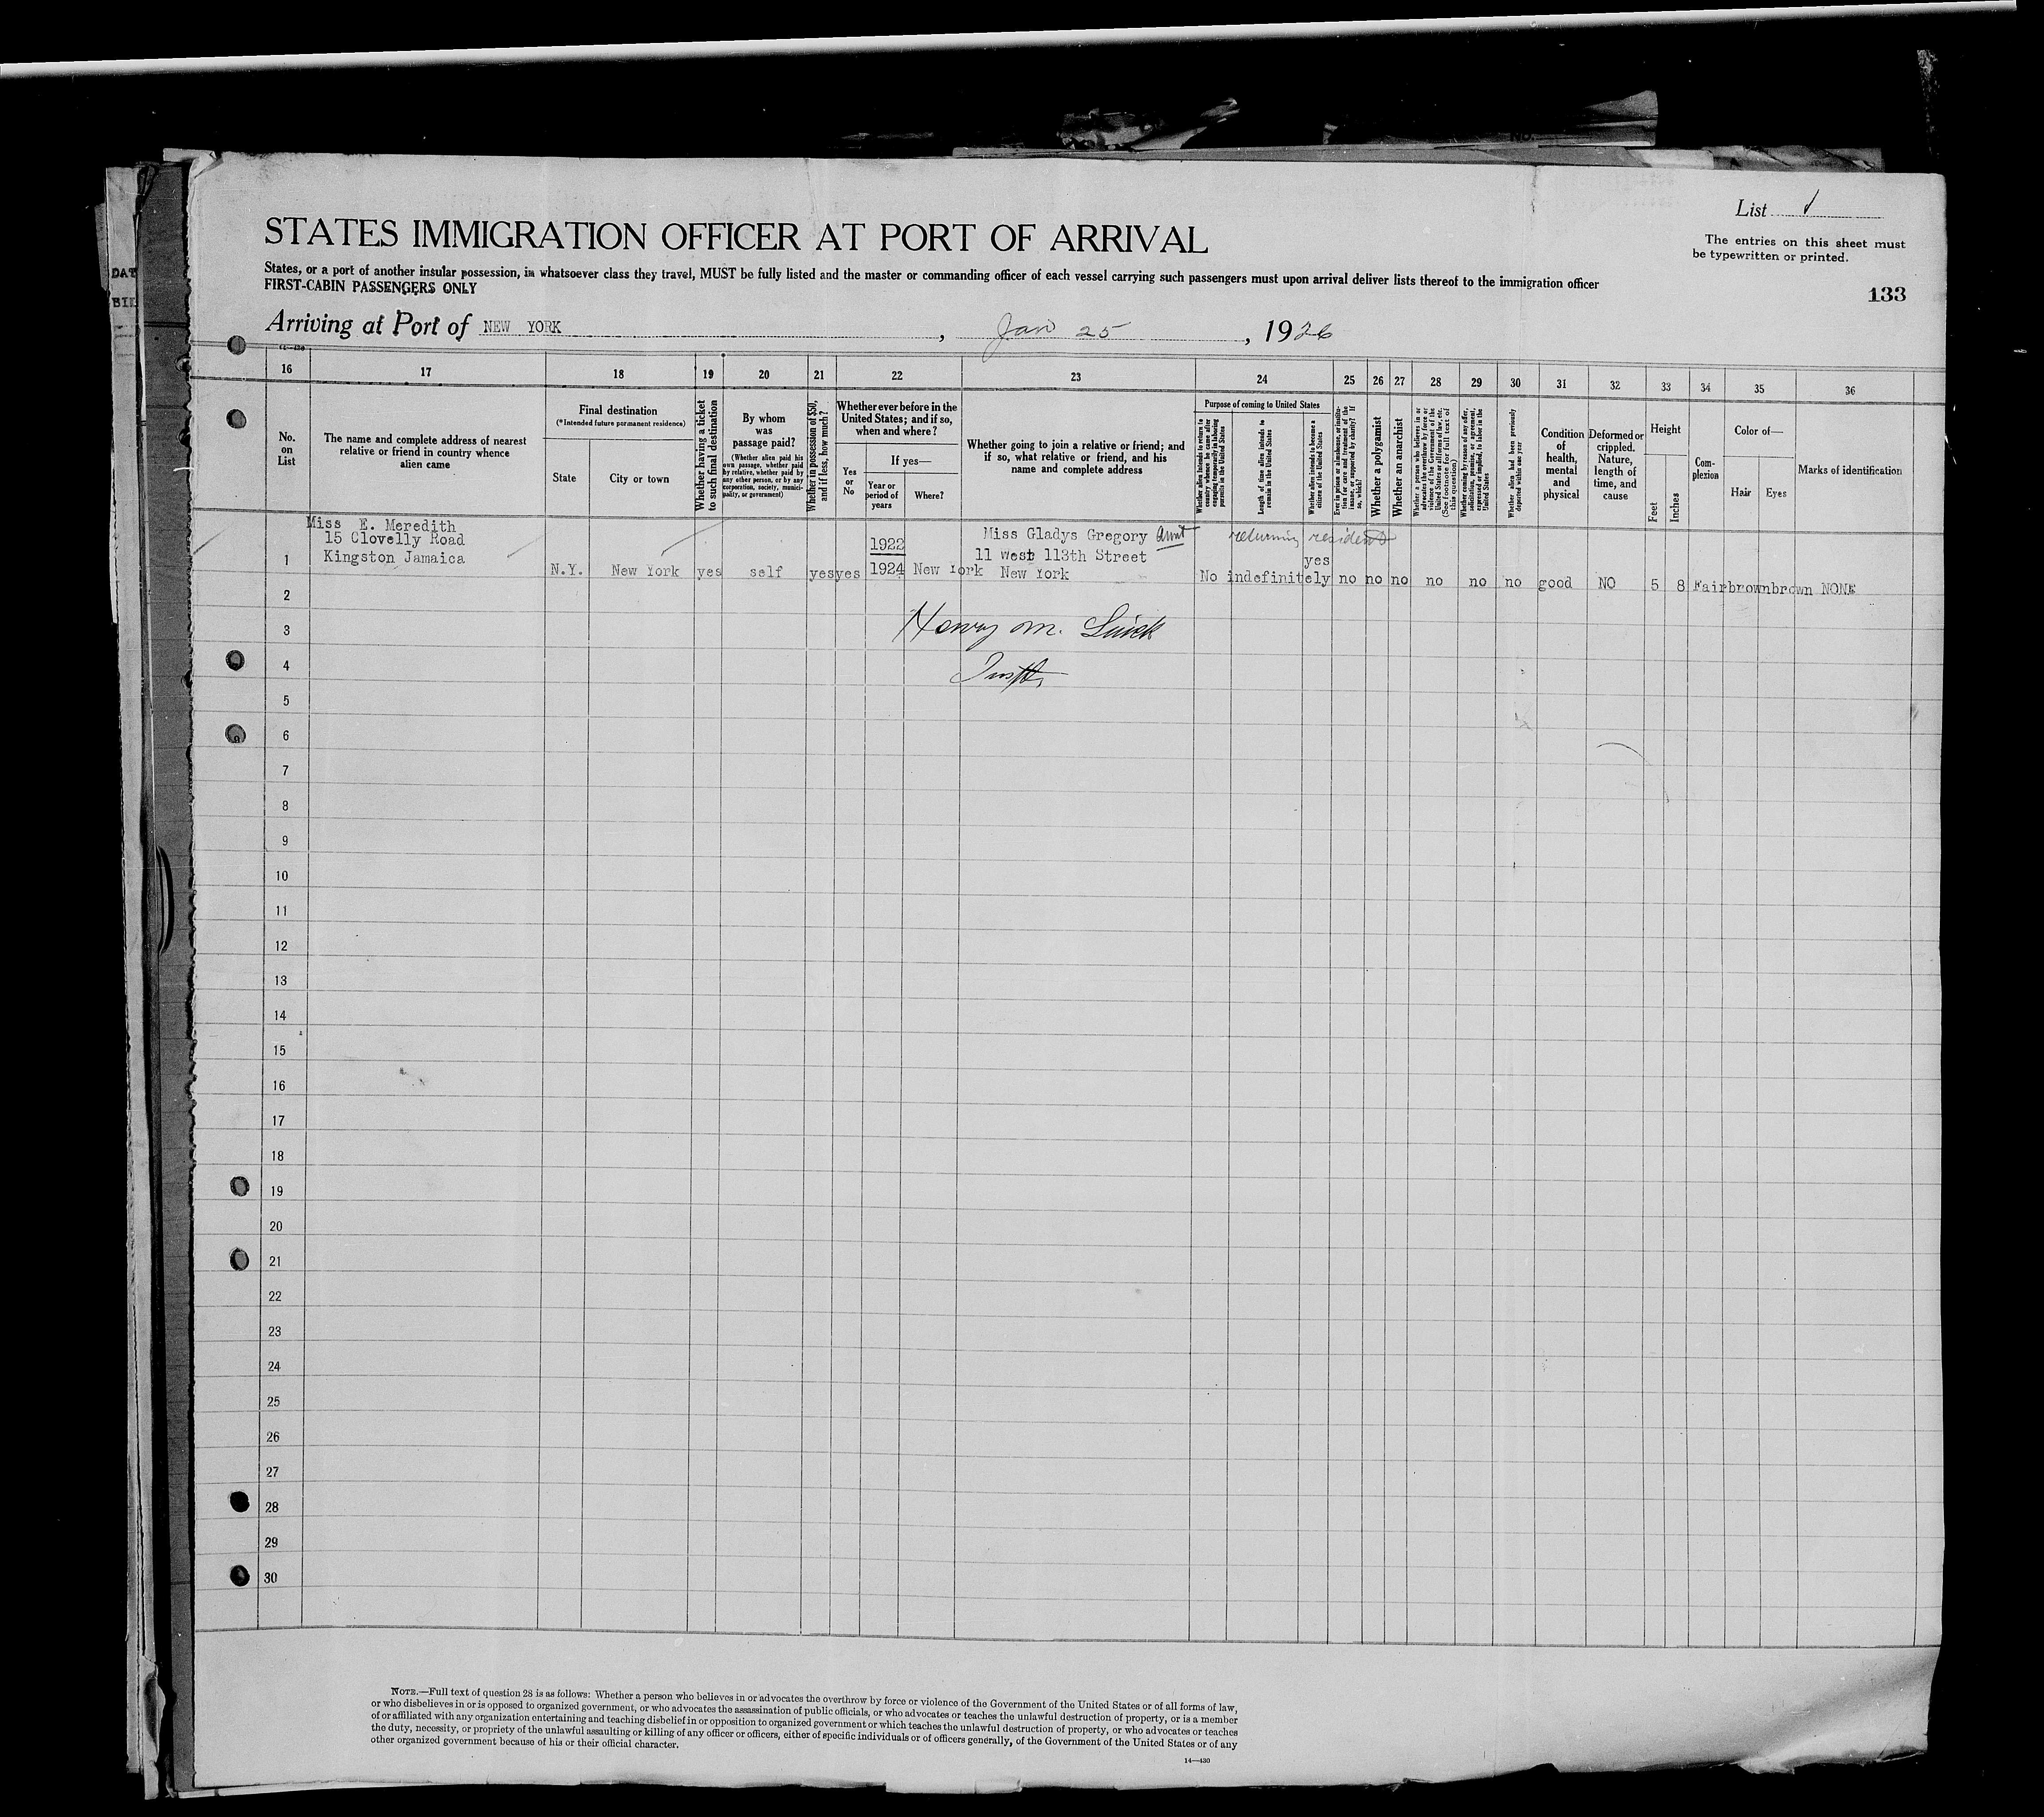 DAT
BIL
List 1
STATES IMMIGRATION OFFICER AT PORT OF ARRIVAL
The entries on this sheet must
be typewritten or printed.
States, or a port of another insular possession, in whatsoever class they travel, MUST be fully listed and the master or commanding officer of each vessel carrying such passengers must upon arrival deliver lists thereof to the immigration officer
FIRST-CABIN PASSENGERS ONLY
133
Arriving at Port of NEW YORK, Jan 25, 1926
14—430
16 17 18 19 20 21 22 23 24 25 26 27 28 29 30 31 32 33 34 35 36
No.
on
List
The name and complete address of nearest
relative or friend in country whence
alien came
Final destination
(*Intended future permanent residence)
State
City or town
Whether having a ticket
to such final destination
By whom
was
passage paid?
(Whether alien paid his
own passage, whether paid
by relative, whether paid by
any other person, or by any
corporation, society, munici-
pality, or government)
Whether in possession of $50,
and if less, how much?
Whether ever before in the
United States; and if so,
when and where?
Yes
or
No
If yes—
Year or
period of
years
Where?
Whether going to join a relative or friend; and
if so, what relative or friend, and his
name and complete address
Purpose of coming to United States
Whether alien intends to return to
country whence he came after
engaging temporarily in laboring
pursuits in the United States
Length of time alien intends to
remain in the United States
Whether alien intends to become a
citizen of the United States
Ever in prison or almshouse, or institu-
tion for care and treatment of the
insane, or supported by charity? If
so, which?
Whether a polygamist
Whether an anarchist
Whether a person who believes in or
advocates the overthrow by force or
violence of the Government of the
United States or all forms of law, etc.
(See footnote for full text of
this question)
Whether coming by reason of any offer,
solicitation, promise, or agreement,
expressed or implied, to labor in the
United States
Whether alien had been previously
deported within one year
Condition
of
health,
mental
and
physical
Deformed or
crippled.
Nature,
length of
time, and
cause
Height
Feet
Inches
Com-
plexion
Color of—
Hair
Eyes
Marks of identification
Miss E. Meredith
15 Clovelly Road
Kingston Jamaica
1922
Miss Gladys Gregory Aunt
11 West 113th Street
returning resident
yes
1 N.Y. New York yes self yes yes 1924 New York New York No indefinitely no no no no no no good NO 5 8 Fair brown brown NONE
2
3 Henry M.
4
5
6
7
8
9
10
11
12
13
14
15
16
17
18
19
20
21
22
23
24
25
26
27
28
29
30
NOTE.—Full text of question 28 is as follows: Whether a person who believes in or advocates the overthrow by force or violence of the Government of the United States or of all forms of law,
or who disbelieves in or is opposed to organized government, or who advocates the assassination of public officials, or who advocates or teaches the unlawful destruction of property, or is a member
of or affiliated with any organization entertaining and teaching disbelief in or opposition to organized government or which teaches the unlawful destruction of property, or who advocates or teaches
the duty, necessity, or propriety of the unlawful assaulting or killing of any officer or officers, either of specific individuals or of officers generally, of the Government of the United States or of any
other organized government because of his or their official character.
14—430